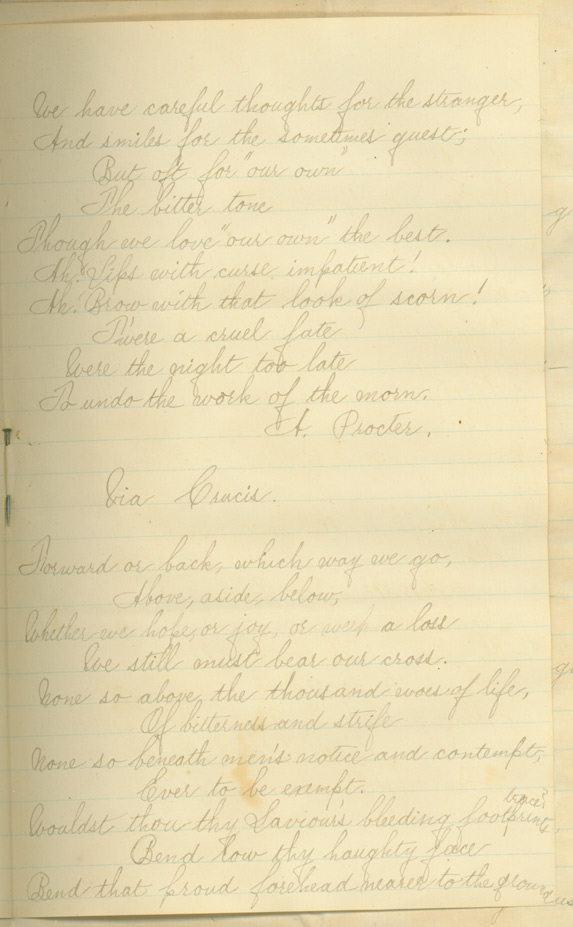 We have careful thoughts for the stranger,
And smiles for the sometimes guest;
But oft for "our own"
The bitter tone
Though we love "our own" the best.
Ah! Lips with curse impatient!
Ah! Brow with that look of scorn!
T'were a cruel fate
Were the night too late
To undo the work of the morn.
A. Procter.
Via Crucis.
Forward or back, which way we go,
Above, aside, below,
Whether we hope, or joy, or weep a loss
We still must bear our cross.
None so above, the thousand woes of life,
Of bitterness and strife
None so beneath men's notice and contempt,
Ever to be exempt.
trace?
Wouldst thou thy Saviour's bleeding footprint
Bend low thy haughty face
Bend that proud forehead nearer to the ground